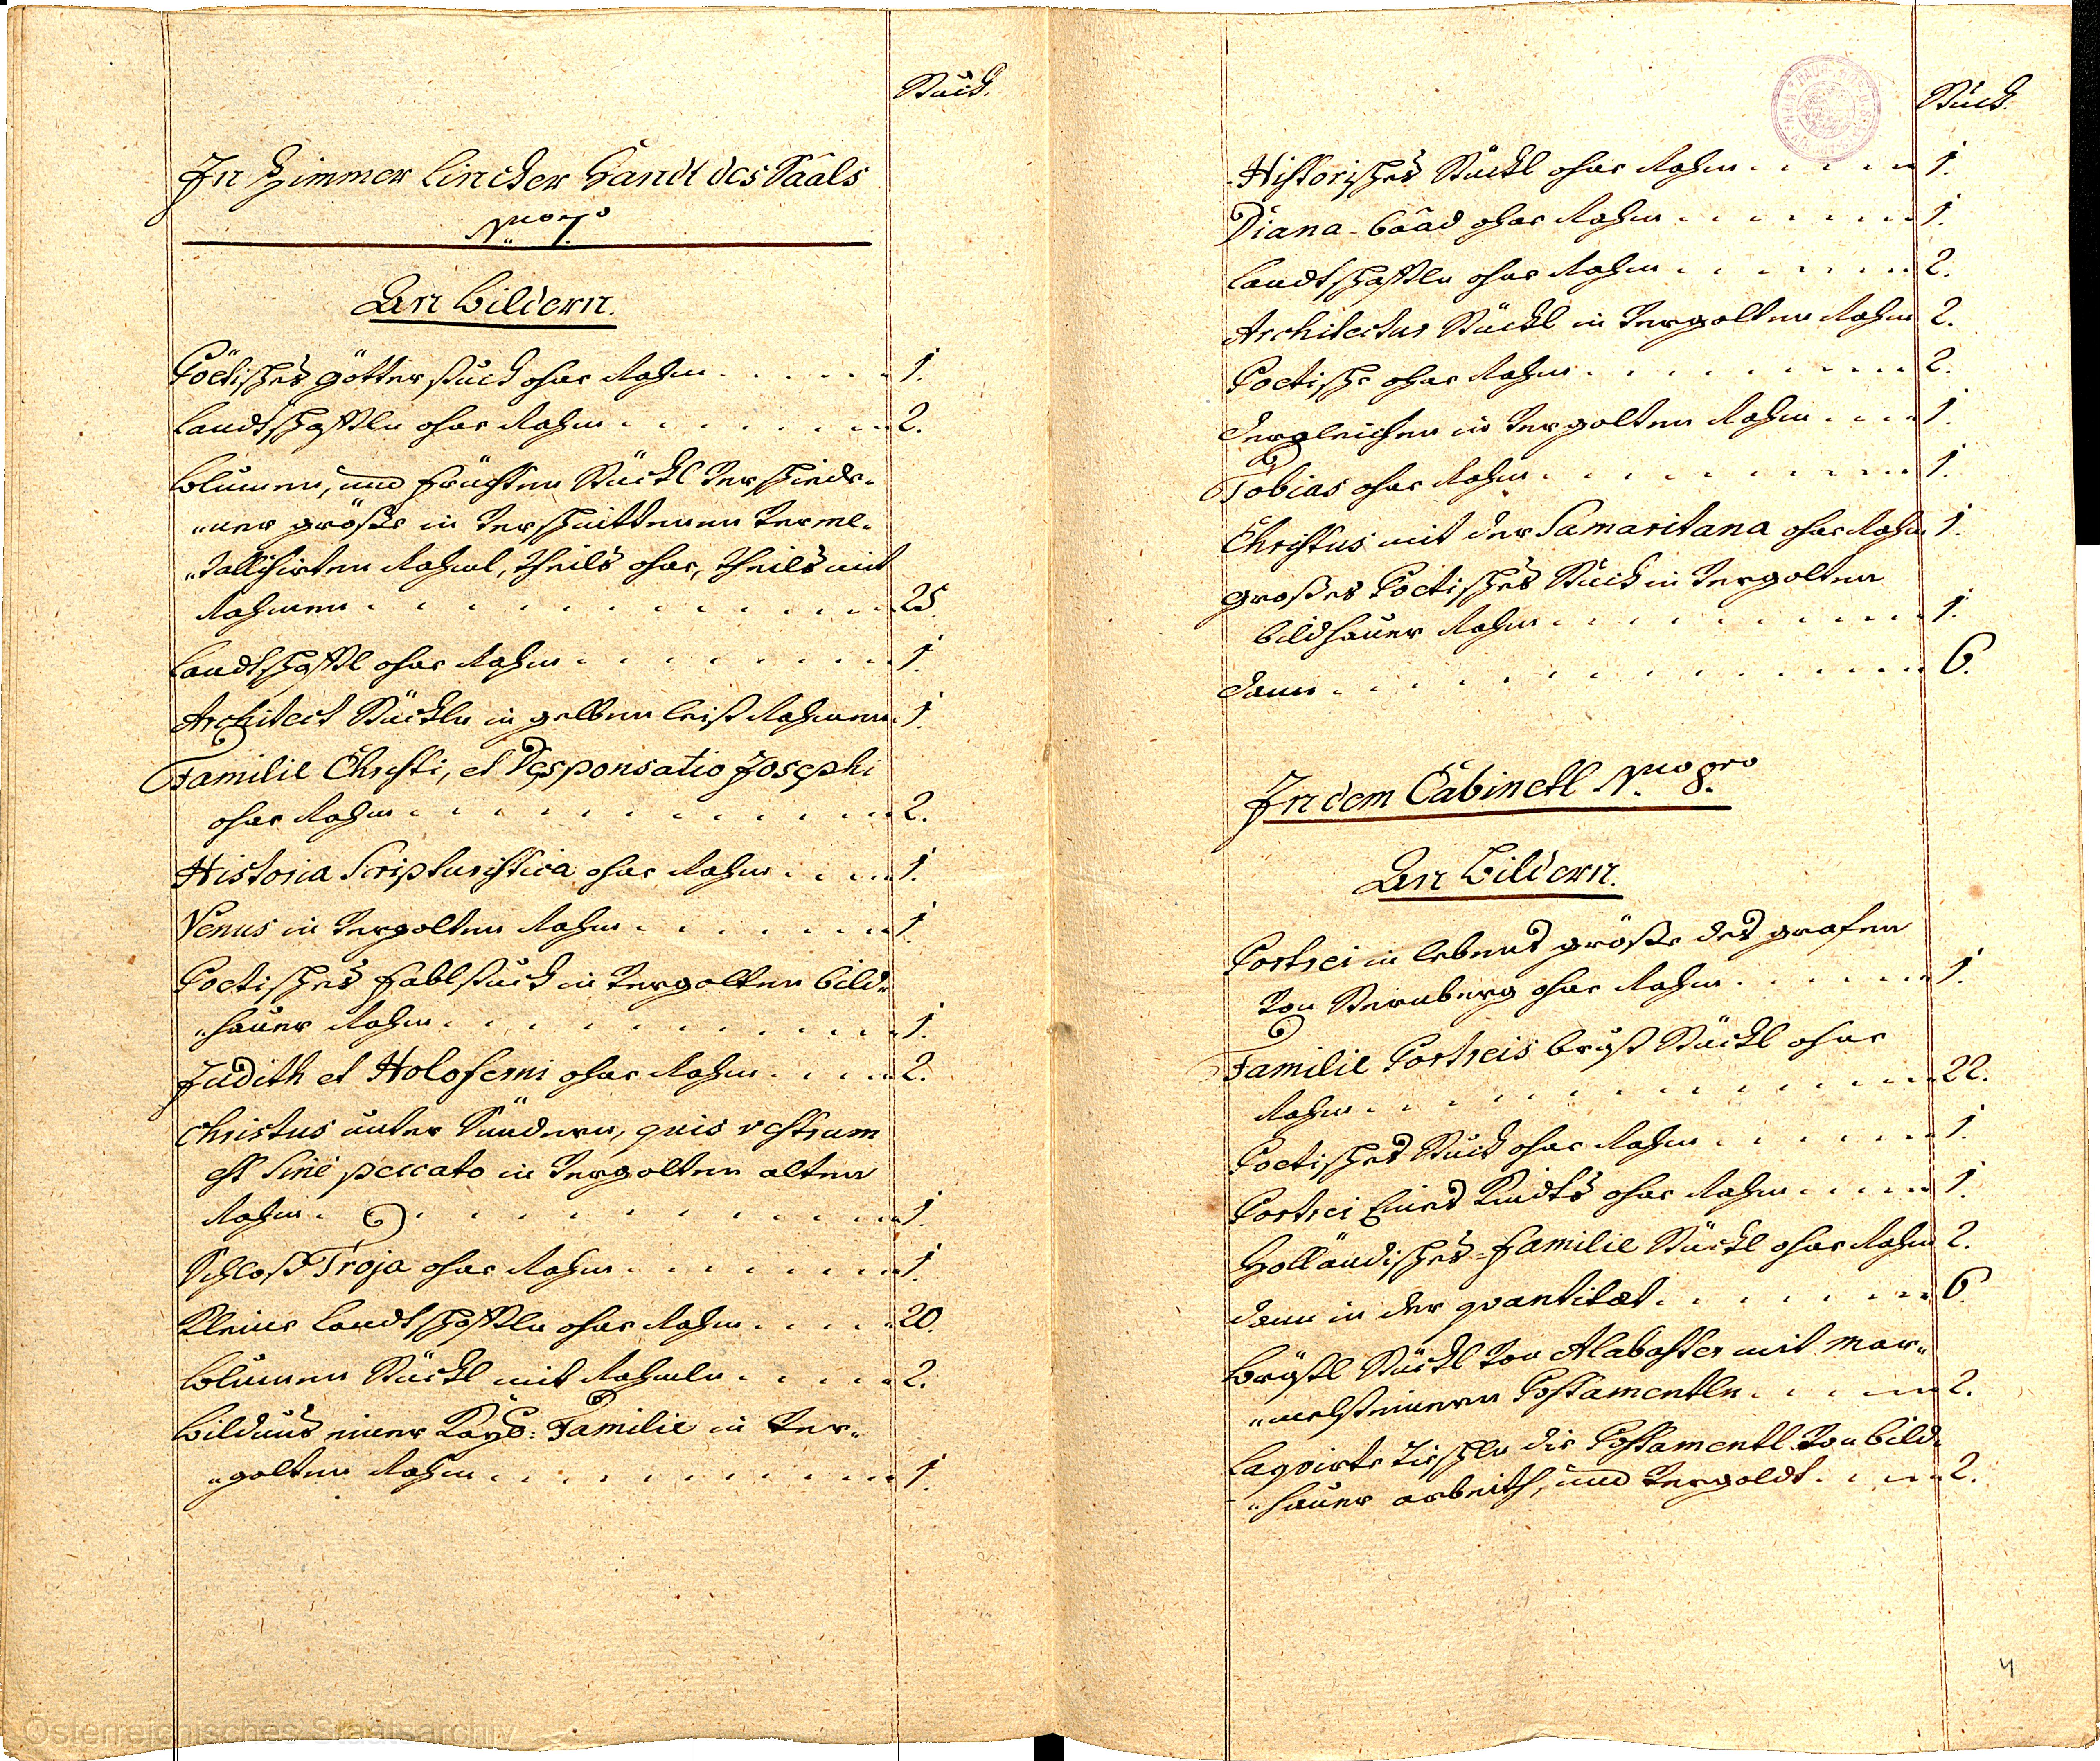 Stuck.
In Zimmer lincker Handt des Saâls
N.ro 7.mo
An Bildern.
Poëtisches götter stuck ohne Rahm 1.
Landtschafftln ohne Rahm 2.
Blumen, und früchten Stückl verschiede-
„ner größe in verschnittenen verme-
„tallisirten Rahml, theils ohne, theils mit
Rahmen 25
Landtschafftl ohne Rahm 1.
Architect Stückln in gelben leist Rahmen 1.
Familie Christi, et Desponsatio Josephi
ohne Rahm 2.
Historia Scripturistica ohne Rahm 1.
Venus in vergolten Rahm 1.
Poetisches Fablstuck in vergolten bild-
„hauer Rahm 1.
Judith et Holoferni ohne Rahm 2.
Christus unter Sündern, quis vestrum
est sine peccato in vergolten alten
Rahm 1.
Schloß Troja ohne Rahm 1.
Kleine Landtschafftln ohne Rahm 20.
Blumen Stückl mit Rahmln 2.
Bildnus einer Kays: Familie in ver-
„golten Rahm 1.
Österreichisches Staatsarchiv
Stuck.
Historisches Stückl ohne Rahm 1.
Diana-Baad ohne Rahm 1.
Landtschafftln ohne Rahm 2.
Architectur Stückl in vergolten Rahm 2.
Poetische ohne Rahm 2.
dergleichen in vergolten Rahm 1.
Tobias ohne Rahm 1.
Christus mit der Samaritana ohne Rahm 1.
großes Poetisches Stuck in vergolten
bildhauer Rahm 1.
dann 6.
In dem Cabinetl N.ro 8.vo
An Bildern.
Portrei in lebens größe des grafen
von Sternberg ohne Rahm 1.
Familie Portreis brust Stückl ohne
Rahm 22.
Poetisches Stuck ohne Rahm 1.
Portrei Eines Kindts ohne Rahm 1.
Holländisches-Familie Stückl ohne Rahm 2.
dann in der quantitæt 6
Brüstl Stückl von Alabaster mit mar-
„melsteinern Postamentln 2.
Laqvirte Tischln die Postamentl von bild-
„hauer arbeith, und vergoldt 2.
4